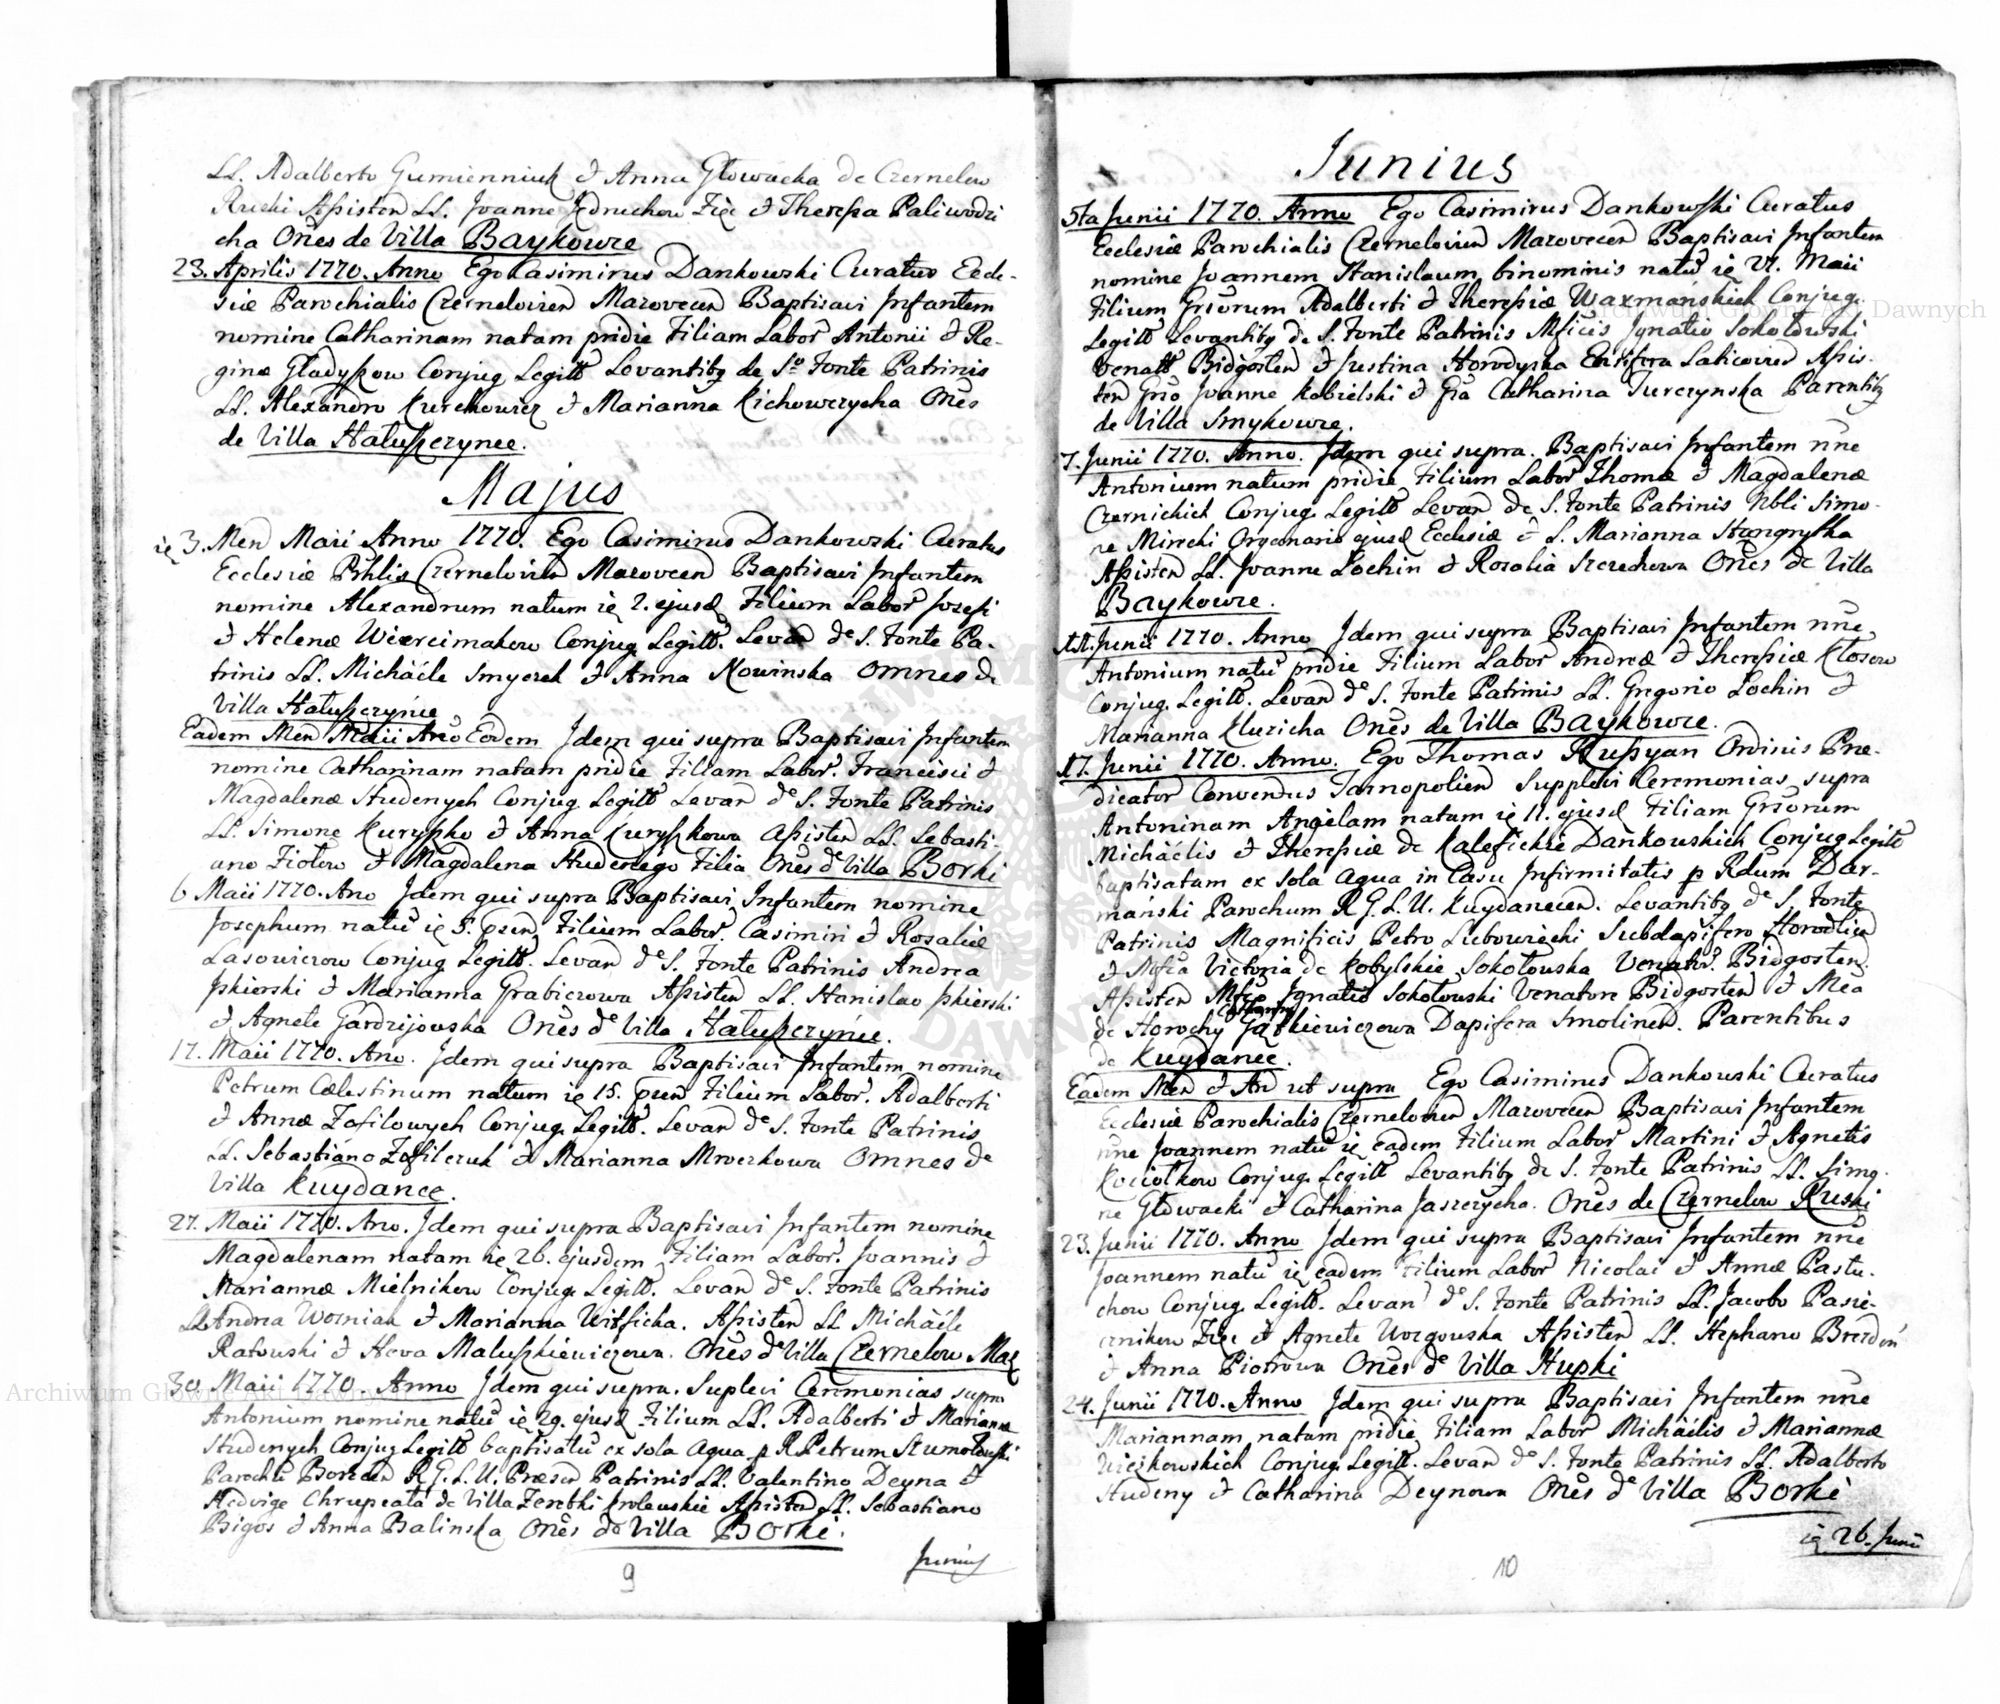 LL. Adalberto Gumienniuk & Anna Głowacka de Czernelow
Ruski Assisten LL. Joanne Jędruchow Zięć & Theressa Paliwodzi
cha Oñes de Villa Baykowce
23. Aprilis 1770. Anno Ego Casimirus Dankowski Curatus Eccle-
siæ Parochialis Czernelovien Mazovecen Baptisavi Infantem
nomine Catharinam natam pridie Filiam Labor Antonii & Re-
ginæ Gladyszow Conjug Legitt Levantibg de So Fonte Patrinis
LL. Alexandro Kurchowicz & Marianna Kichowczycha Oñes
de Villa Hałuszczynce.
Majus
ię 3. Men Maii Anno 1770. Ego Casimirus Dankowski Curatus
Ecclesiæ Pchlis Czernelovien Mazovecen Baptisavi Infantem
nomine Alexandrum natum ię 2. ejusd Filium Labor Josefi
& Helenæ Wiercimakow Conjug Legitt. Levan de S. Fonte Pa-
trinis LL. Michäéle Smyczek & Anna Nowinska Omnes de
Villa Hałuszczynie
Eadem Men Maii Año Eodem Idem qui supra Baptisavi Infantem
nomine Catharinam natam pridie Filiam Labor. Francisci &
Magdalenæ Studenych Conjug Legitt Levan de S. Fonte Patrinis
LL. Simone Kuryszko & Anna Kuryszkowa Assisten LL. Sebasti-
ano Fiołow & Magdalena Studenego Filia Oñes de Villa Borki
6 Maii 1770. Ano Idem qui supra Baptisavi Infantem nomine
Josephum natū ię 5. pren Filium Labor. Casimiri & Rosaliæ
Lasowiczow Conjug Legitt. Levan de S. Fonte Patrinis Andrea
Jskierski & Marianna Grabiczowa Assisten LL. Stanislao Jskierski
& Agnete Gardzijowska Oñes de Villa Hałuszczynce.
17. Maii 1770. Ano. Idem qui supra Baptisavi Infantem nomine
Petrum Cælestinum natum ię 15. pren Filium Labor. Adalberti
& Annæ Zafilowych Conjug Legitt. Levan de S. Fonte Patrinis
LL. Sebastiano Zafilczuk & Marianna Mroczkowa Omnes de
Villa Kuydance.
27. Maii 1770. Ano. Idem qui supra Baptisavi Infantem nomine
Magdalenam natam ię 26. ejusdem Filiam Labor. Joannis &
Mariannæ Mielnikow Conjug Legitt. Levan de S. Fonte Patrinis
LL Andrea Wozniak & Marianna Witficha. Assisten LL Michäéle
Ratowski & Heva Maluszkiewiczowa. Oñes de Villa Czernelow Maz
30 Maii 1770. Anno Idem qui supra. Suplevi Ceremonias supra
Antonium nomine natū ię 29. ejusd Filium LL. Adalberti & Mariannæ
Studenych Conjug Legitt baptisatū ex sola aqua p R Petrum Szumołowski
Parochū Borcen R. G. L. U. Præsen Patrinis LL. Valentino Deyna &
Hedvige Chrupcata de Villa Zerebki Krolewskie Assisten LL. Sebastiano
Bigos & Anna Balinska Oñes de Villa Borki.
Junius
9
Junius
5ta Junii 1770. Anno Ego Casimirus Dankowski Curatus
Ecclesiæ Parochialis Czerneloviен Mazovecen Baptisavi Infantem
nomine Joannem Stanislaum binominis natū ię 27. Maii
Filium Grsorum Adalberti & Theresiæ Waxmańskich Conjug.
Legitt Levantibg de S. Fonte Patrinis Mficis Ignatio Sokołowski
Venatt Bidgosten & Justina Horodyska Ensifera Laticovien Assis-
ten Grso Joanne Kobielski & Gsa Catharina Turczynska Parentibg
de Villa Smykowce.
7. Junii 1770. Anno. Idem qui supra. Baptisavi Infantem nñe
Antonium natum pridie Filium Labor Thomæ & Magdalenæ
Czernichich Conjug Legitt Levan de S. Fonte Patrinis Nbli Simo-
ne Mirecki Organario ejusd Ecclesiæ & L. Marianna Hangryska
Assisten LL. Joanne Lochin & Rozalia Szczechowa Oñes de Villa
Baykowce.
11. Junii 1770. Anno Idem qui supra Baptisavi Infantem nñe
Antonium natū pridie Filium Labor Andreæ & Theresiæ Kłosow
Conjug. Legitt. Levan de S. Fonte Patrinis LL. Gregorio Lochin &
Marianna Kluzicha Oñes de Villa Baykowce.
17. Junii 1770. Anno. Ego Thomas Russyan Ordinis Præ-
dicator Conventus Tarnopolien Supplevi Ceremonias supra
Antoninam Angelam natam ię 11. ejusd Filiam Grsorum
Michäélis & Theresiæ de Kalefickie Dankowskich Conjug Legitt
baptisatam ex sola aqua in Casu Infirmitatis p Rdum Dar-
mański Parochum R. G. L. U. Kuydanecen. Levantibg de S. Fonte
Patrinis Magnificis Petro Lubowiecki Subdapifero Horodlien
& Mfica Victoria de Kobylskie Sokołowska Venatr. Bidgosten.
Assisten Mfco Ignatio Sokołowski Venatore Bidgosten & Mca
Catharina
de Horochy Gątkiewiczowa Dapifera Smolinen. Parentibus
de Kuydance.
Eadem Men & An ut supra Ego Casimirus Dankowski Curatus
Ecclesiæ Parochialis Czerneloviен Mazovecen Baptisavi Infantem
nñe Joannem natū ię eadem Filium Labor Martini & Agnetis
Kociołkow Conjug Legitt Levantibg de S. Fonte Patrinis LL. Simo-
ne Głowacki & Catharina Jaszczycha. Oñes de Czernelow Ruski
23. Junii 1770. Anno Idem qui supra Baptisavi Infantem nñe
Joannem natū ię eadem Filium Labor Nicolai & Annæ Pastu-
chow Conjug Legitt. Levan de S. Fonte Patrinis LL. Jacobo Pasie-
cznikow Zięć & Agnete Wozgowska Assisten LL. Stephano Brezden
& Anna Piotrowa Oñes de Villa Stupki
24. Junii 1770. Anno Idem qui supra Baptisavi Infantem nñe
Mariannam natam pridie Filiam Labor Michäélis & Mariannæ
Wieżkowskich Conjug. Legitt. Levan de S. Fonte Patrinis LL. Adalberto
Studeny & Catharina Deynowa Oñes de Villa Borki
ię 26. Junii
10
Archiwum Główne Akt Dawnych
Archiwum Główne Akt Dawnych